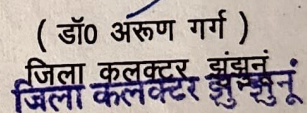 ( डॉ0 अरूण गर्ग )
जिला कलक्टर झुंझुनूं
जिला कलक्टर झुन्झुनूं